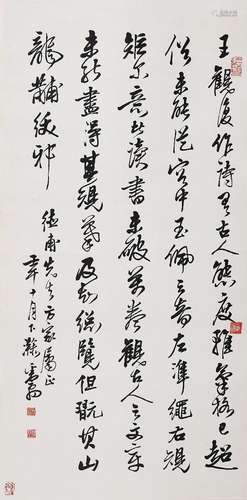 王觀復作詩有古人態度雖氣格已超
俗未能從容中玉佩之音左準繩右規
矩尔意者讀書未破萬卷觀古人之文章
未能盡得其規摹及所總覽但玩其山
龍黼紱邪
先生方家屬正
年十月下澣